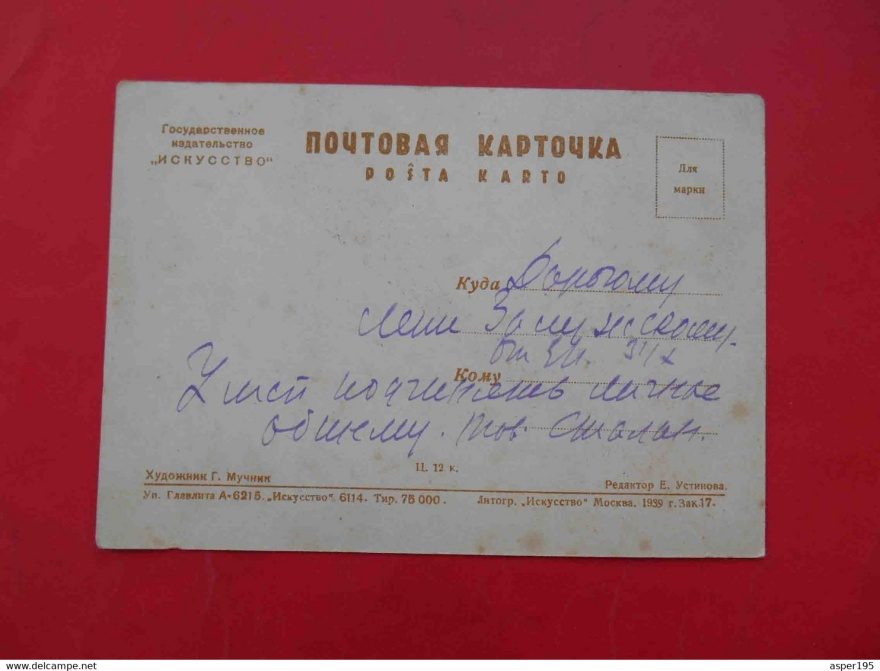 Государственное
издательство
„ИСКУССТВО"
ПОЧТОВАЯ КАРТОЧКА
POŜTA KARTO
Для
марки
Куда Дорогому
Лени
от
Кому
подчинять личное
общему. тов. Сталин.
Ц. 12 к.
Художник Г. Мучник
Редактор Е. Устинова.
Уп. Главлита А-6215. „Искусство" 6114. Тир. 75 000.
Литогр. „Искусство" Москва. 1939 г. Зак. 17.
asper195